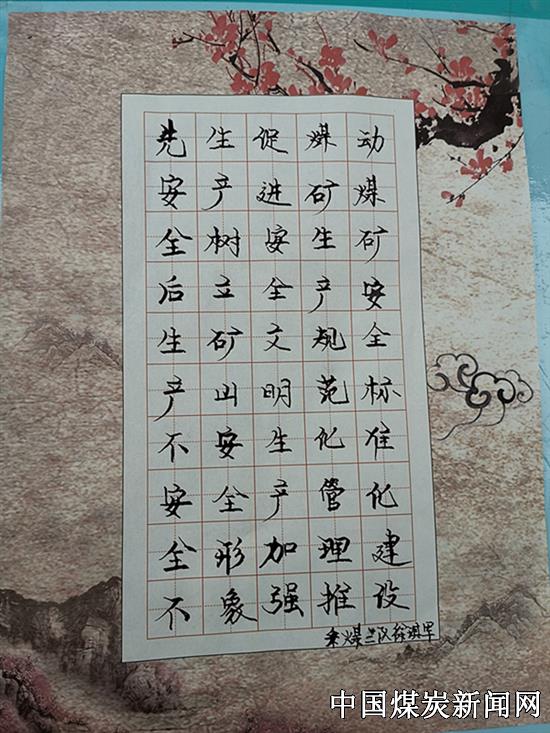 先安全后生产不安全不
生产树立矿山安全形象
促进安全文明生产加强
煤矿生产规范化管理推
动煤矿安全标准化建设
采煤队徐军
中国煤炭新闻网